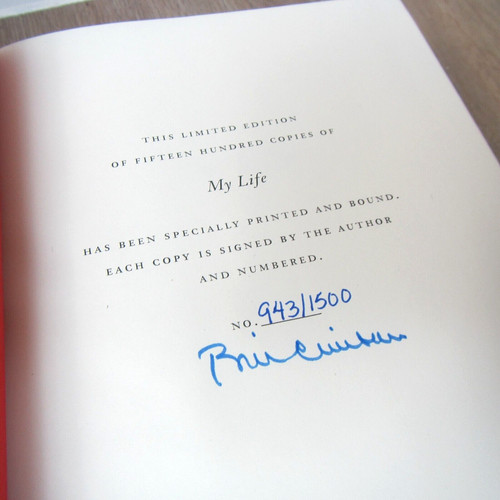 THIS LIMITED EDITION
OF FIFTEEN HUNDRED COPIES OF
My Life
HAS BEEN SPECIALLY PRINTED AND BOUND.
EACH COPY IS SIGNED BY THE AUTHOR
AND NUMBERED.
NO. 943/1500
Bill Clinton